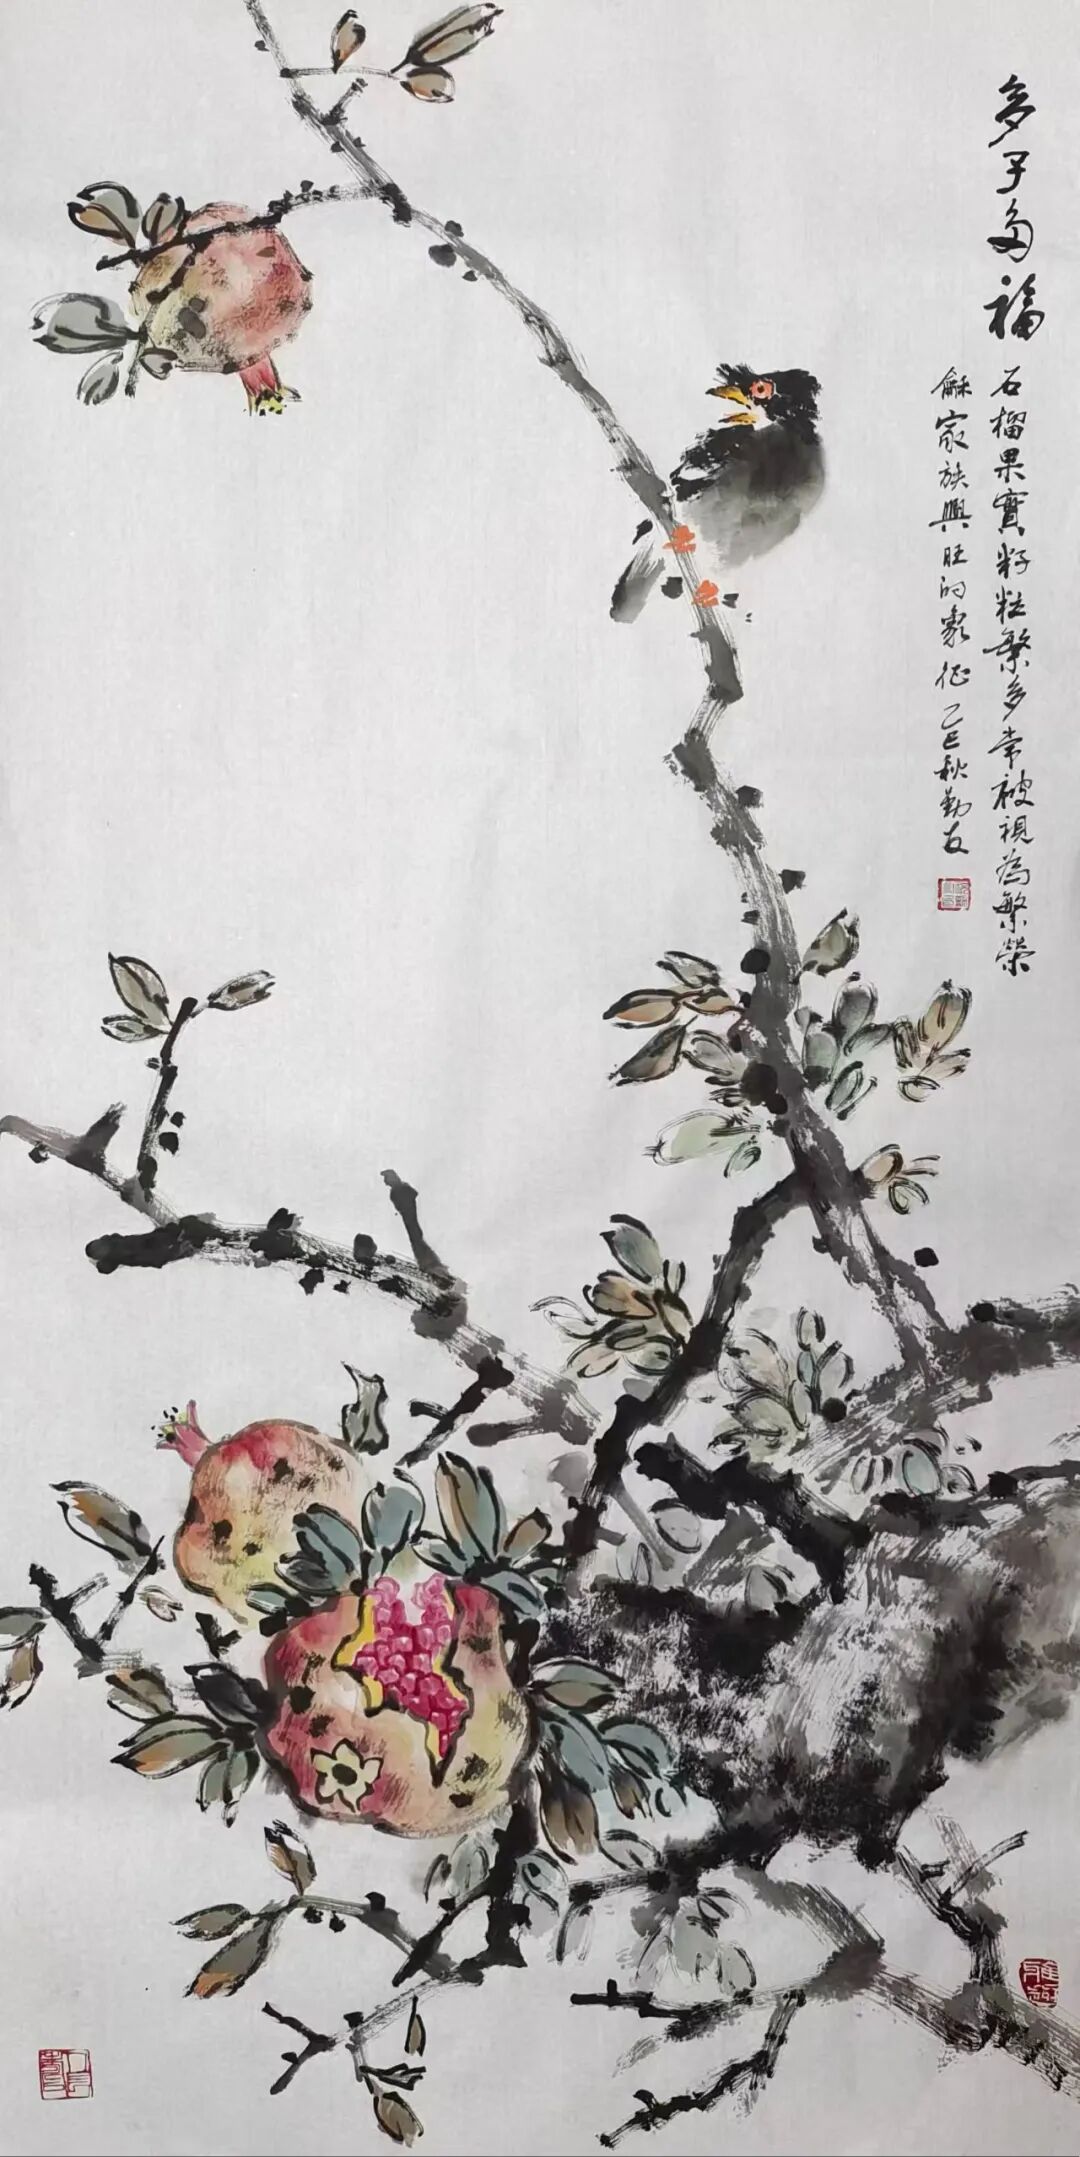 多子多福
石榴果實籽粒繁多常被視為繁榮
龢家族興旺的象征乙巳秋勤友
雅趣